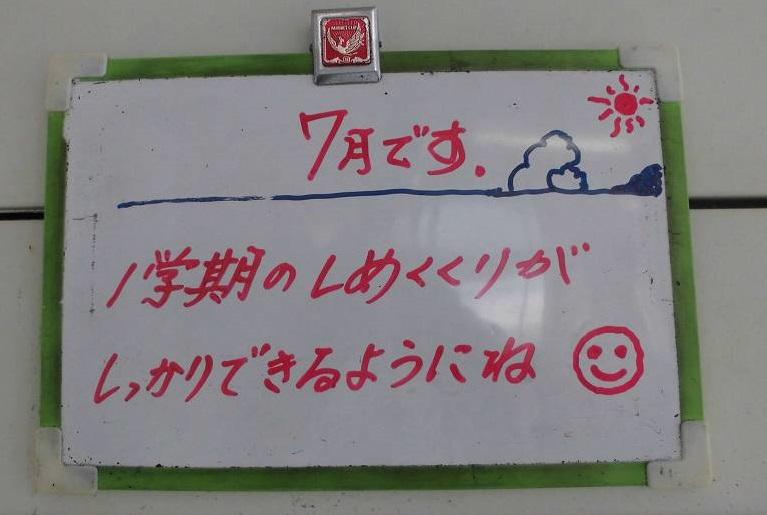 7月です.
1学期のしめくくりが
しっかりできるようにね